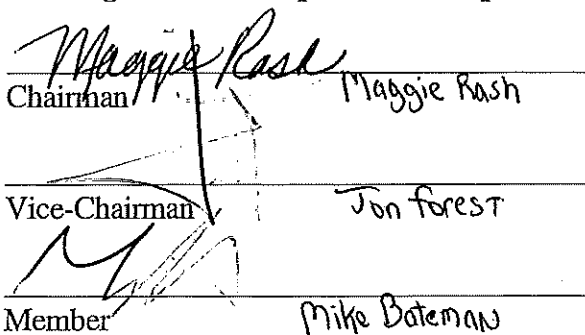 Maggie Rash
Chairman Maggie Rash
Vice-Chairman Jon Forest
Member Mike Bateman